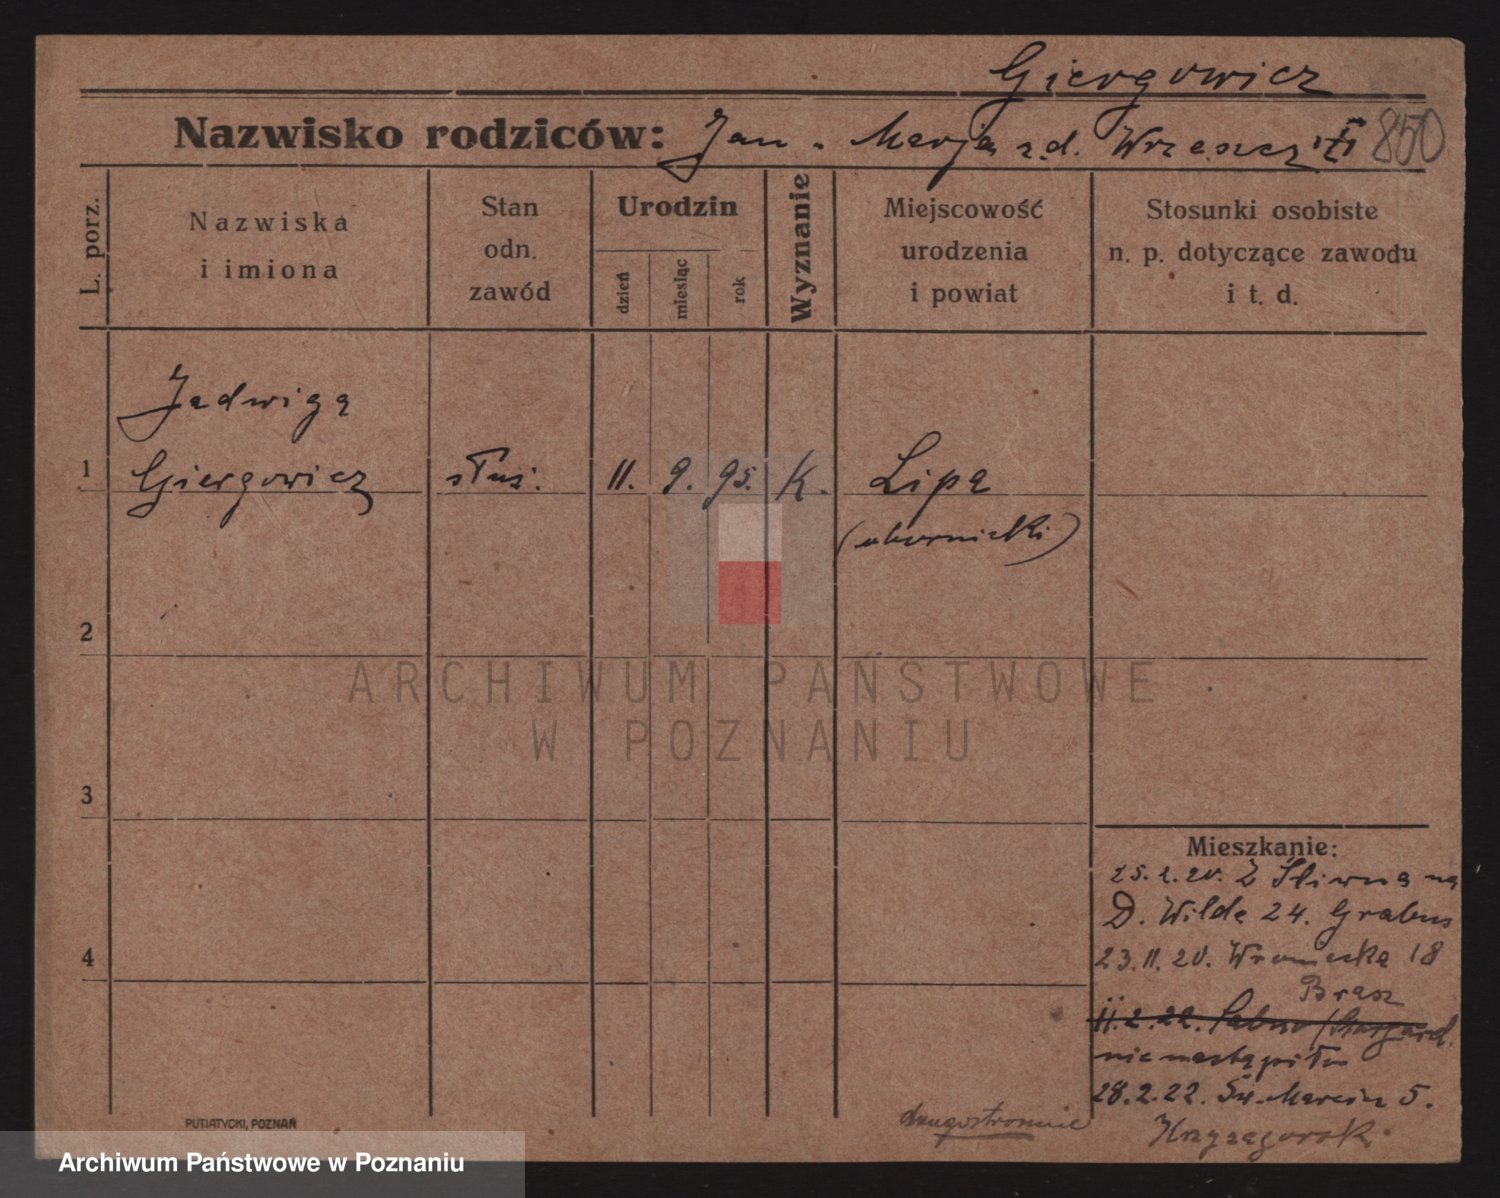 Giergowicz
Nazwisko rodziców: Jan . Marja z.d. 850
L. porz.
Nazwiska
i imiona
Stan
odn.
zawód
Urodzin
dzień
miesiąc
rok
Wyznanie
Miejscowość
urodzenia
i powiat
Stosunki osobiste
n. p. dotyczące zawodu
i t. d.
Jadwiga
1 Giergowicz służ. 11. 9. 95. K. Lipa
(obornicki)
2
ARCHIWUM PAŃSTWOWE
W POZNANIU
3
Mieszkanie:
25. 2. 20. Z Śliwna na
D. Wilda 24. Grabus
4
23. 11. 20. Wroniecka 18
Brasz
11. 2. 22.
nie nastąpiło
28. 2. 22. Św. Marcin 5.
drugostronnie
PUTIATYCKI, POZNAŃ
Archiwum Państwowe w Poznaniu